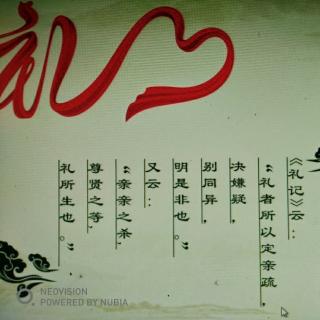 《礼记》云：
“礼者所以定亲疏，
决嫌疑，
别同异，
明是非也。”
又云：
“亲亲之杀，
尊贤之等，
礼所生也。”
NEOVISION
POWERED BY NUBIA